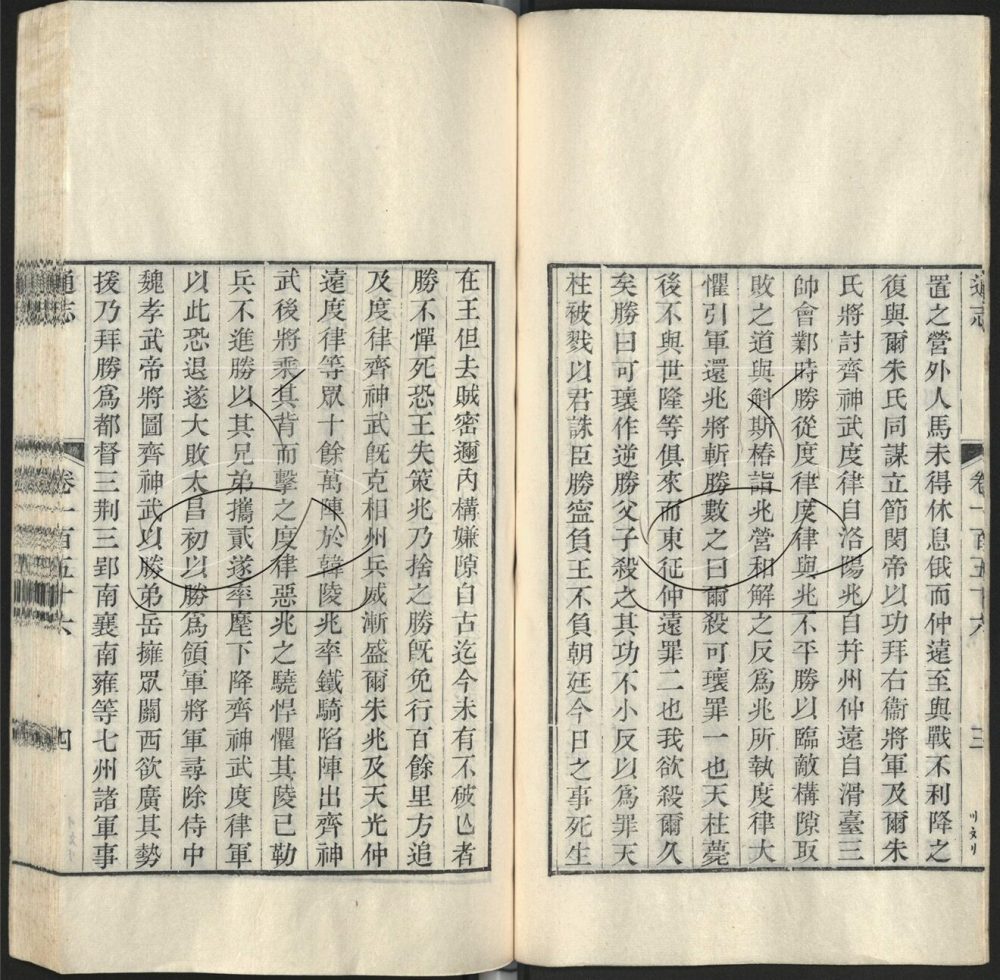 通志
卷一百五十六
三
置之營外人馬未得休息俄而仲遠至與戰不利降之
復與爾朱氏同謀立節閔帝以功拜右衞將軍及爾朱
氏將討齊神武度律自洛陽兆自幷州仲遠自滑臺三
帥會鄴時勝從度律度律與兆不平勝以臨敵構隙取
敗之道與斛斯椿詣兆營和解之反爲兆所執度律大
懼引軍還兆將斬勝數之曰爾殺可瓌罪一也天柱薨
後不與世隆等俱來而東征仲遠罪二也我欲殺爾久
矣勝曰可瓌作逆勝父子殺之其功不小反以爲罪天
柱被戮以君誅臣勝寍負王不負朝廷今日之事死生
在王但去賊密邇內構嫌隙自古迄今未有不破亾者
勝不憚死恐王失策兆乃捨之勝旣免行百餘里方追
及度律齊神武旣克相州兵威漸盛爾朱兆及天光仲
遠度律等眾十餘萬陣於韓陵兆率鐵騎陷陣出齊神
武後將乘其背而擊之度律惡兆之驍悍懼其陵己勒
兵不進勝以其兄弟攜貳遂率麾下降齊神武度律軍
以此恐退遂大敗太昌初以勝爲領軍將軍尋除侍中
魏孝武帝將圖齊神武以勝弟岳擁眾關西欲廣其勢
援乃拜勝爲都督三荆三郢南襄南雍等七州諸軍事
通志
卷一百五十六
四